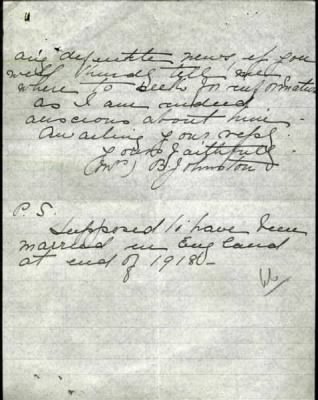 any definite news if you
will kindly tell me
where to seek for information
as I am indeed
anxious about him.
Awaiting your reply
Yours faithfully
(Mrs) B Johnston
P.S.
Supposed to have been
married in England
at end of 1918 -